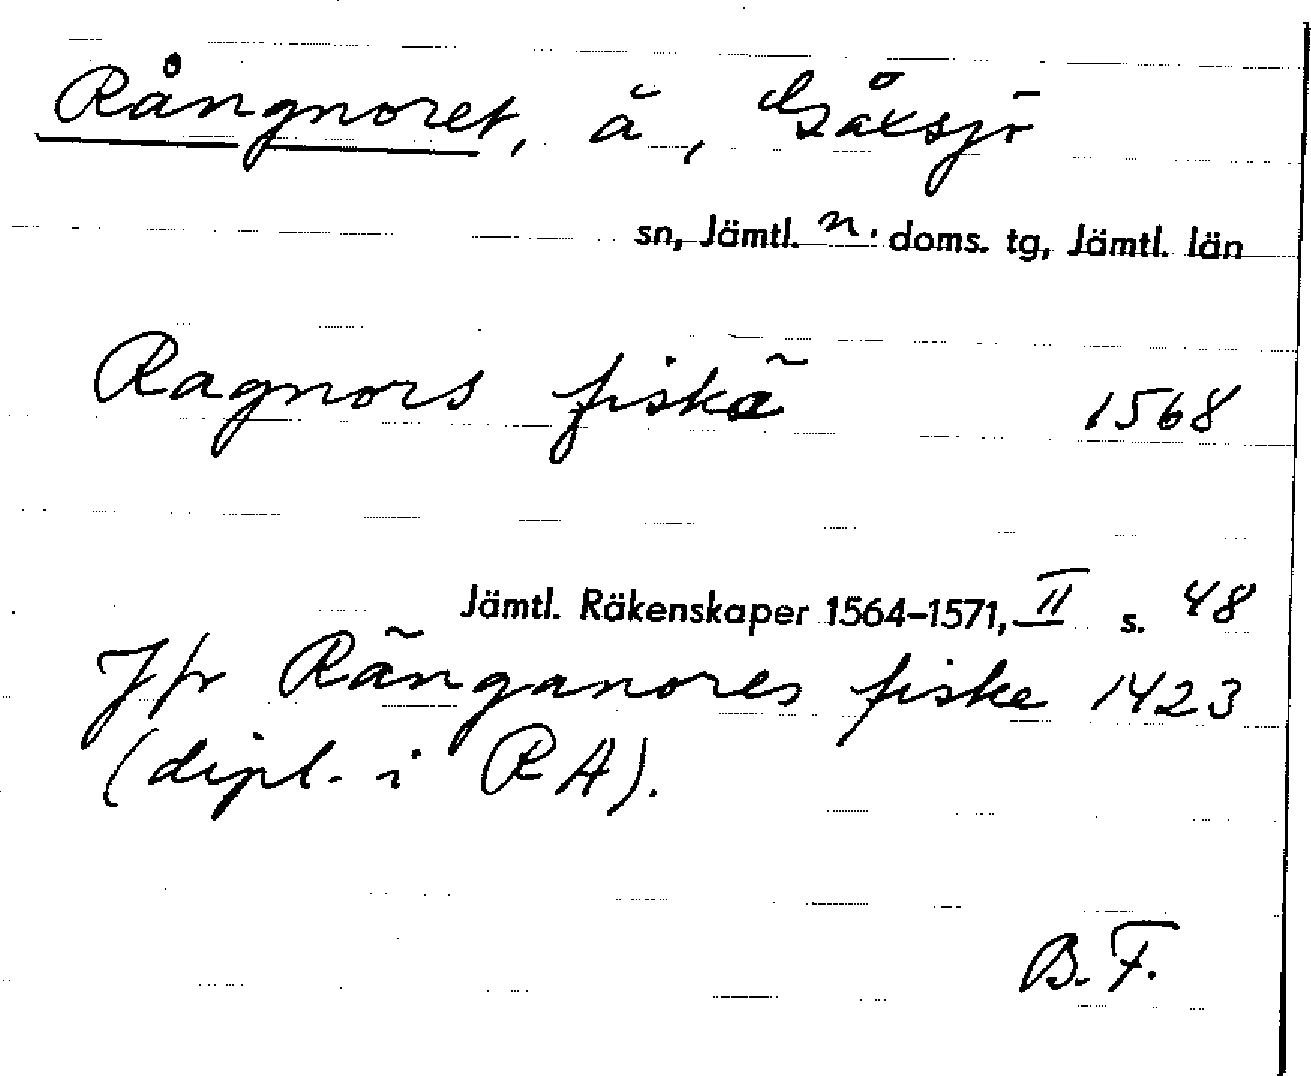 Rångnoret, å, Gåxsjö
sn, Jämtl. n. doms. tg, Jämtl. län
Ragnors fiskã 1568
Jämtl. Räkenskaper 1564–1571, II s. 48
Jfr Rãnganores fiske 1423
(dipl. i RA).
B. F.